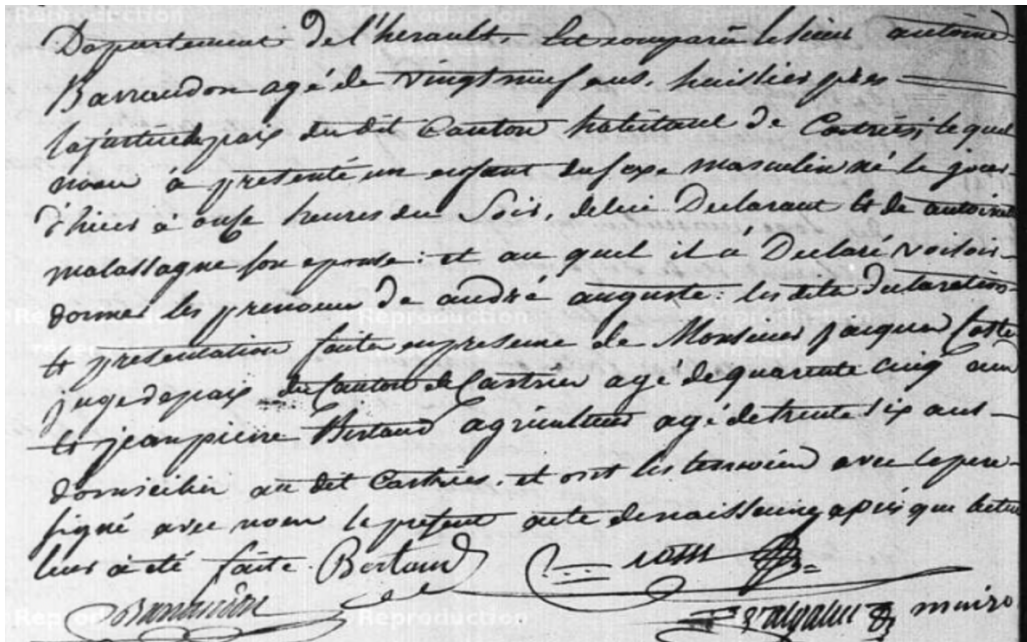 Departement de l'herault, Est comparu le sieur antoine
Barraudon agé de vingt neuf ans, huissier pres
la justice de paix du dit Canton habitant de Castries, le quel
nous à presenté un enfant du sexe masculin né le jour
d'hier à onse heures du Soir, de lui Declarant et de antoinette
malassagne son epouse: et au quel il à Declaré vouloir
donner les prenoms de andré auguste: les dite declaration
et presentation faite en presence de Monsieur jacques
juge de paix du Canton de Castries agé de quarente cinq ans
et jean pierre Bertaud agriculteur agé de trente six ans
domicilier au dit Castries, et ont les temoins avec le pere
signé avec nous le present acte de naissance apres que lecture
leur à été faite. Bertaud
Barraudon maire